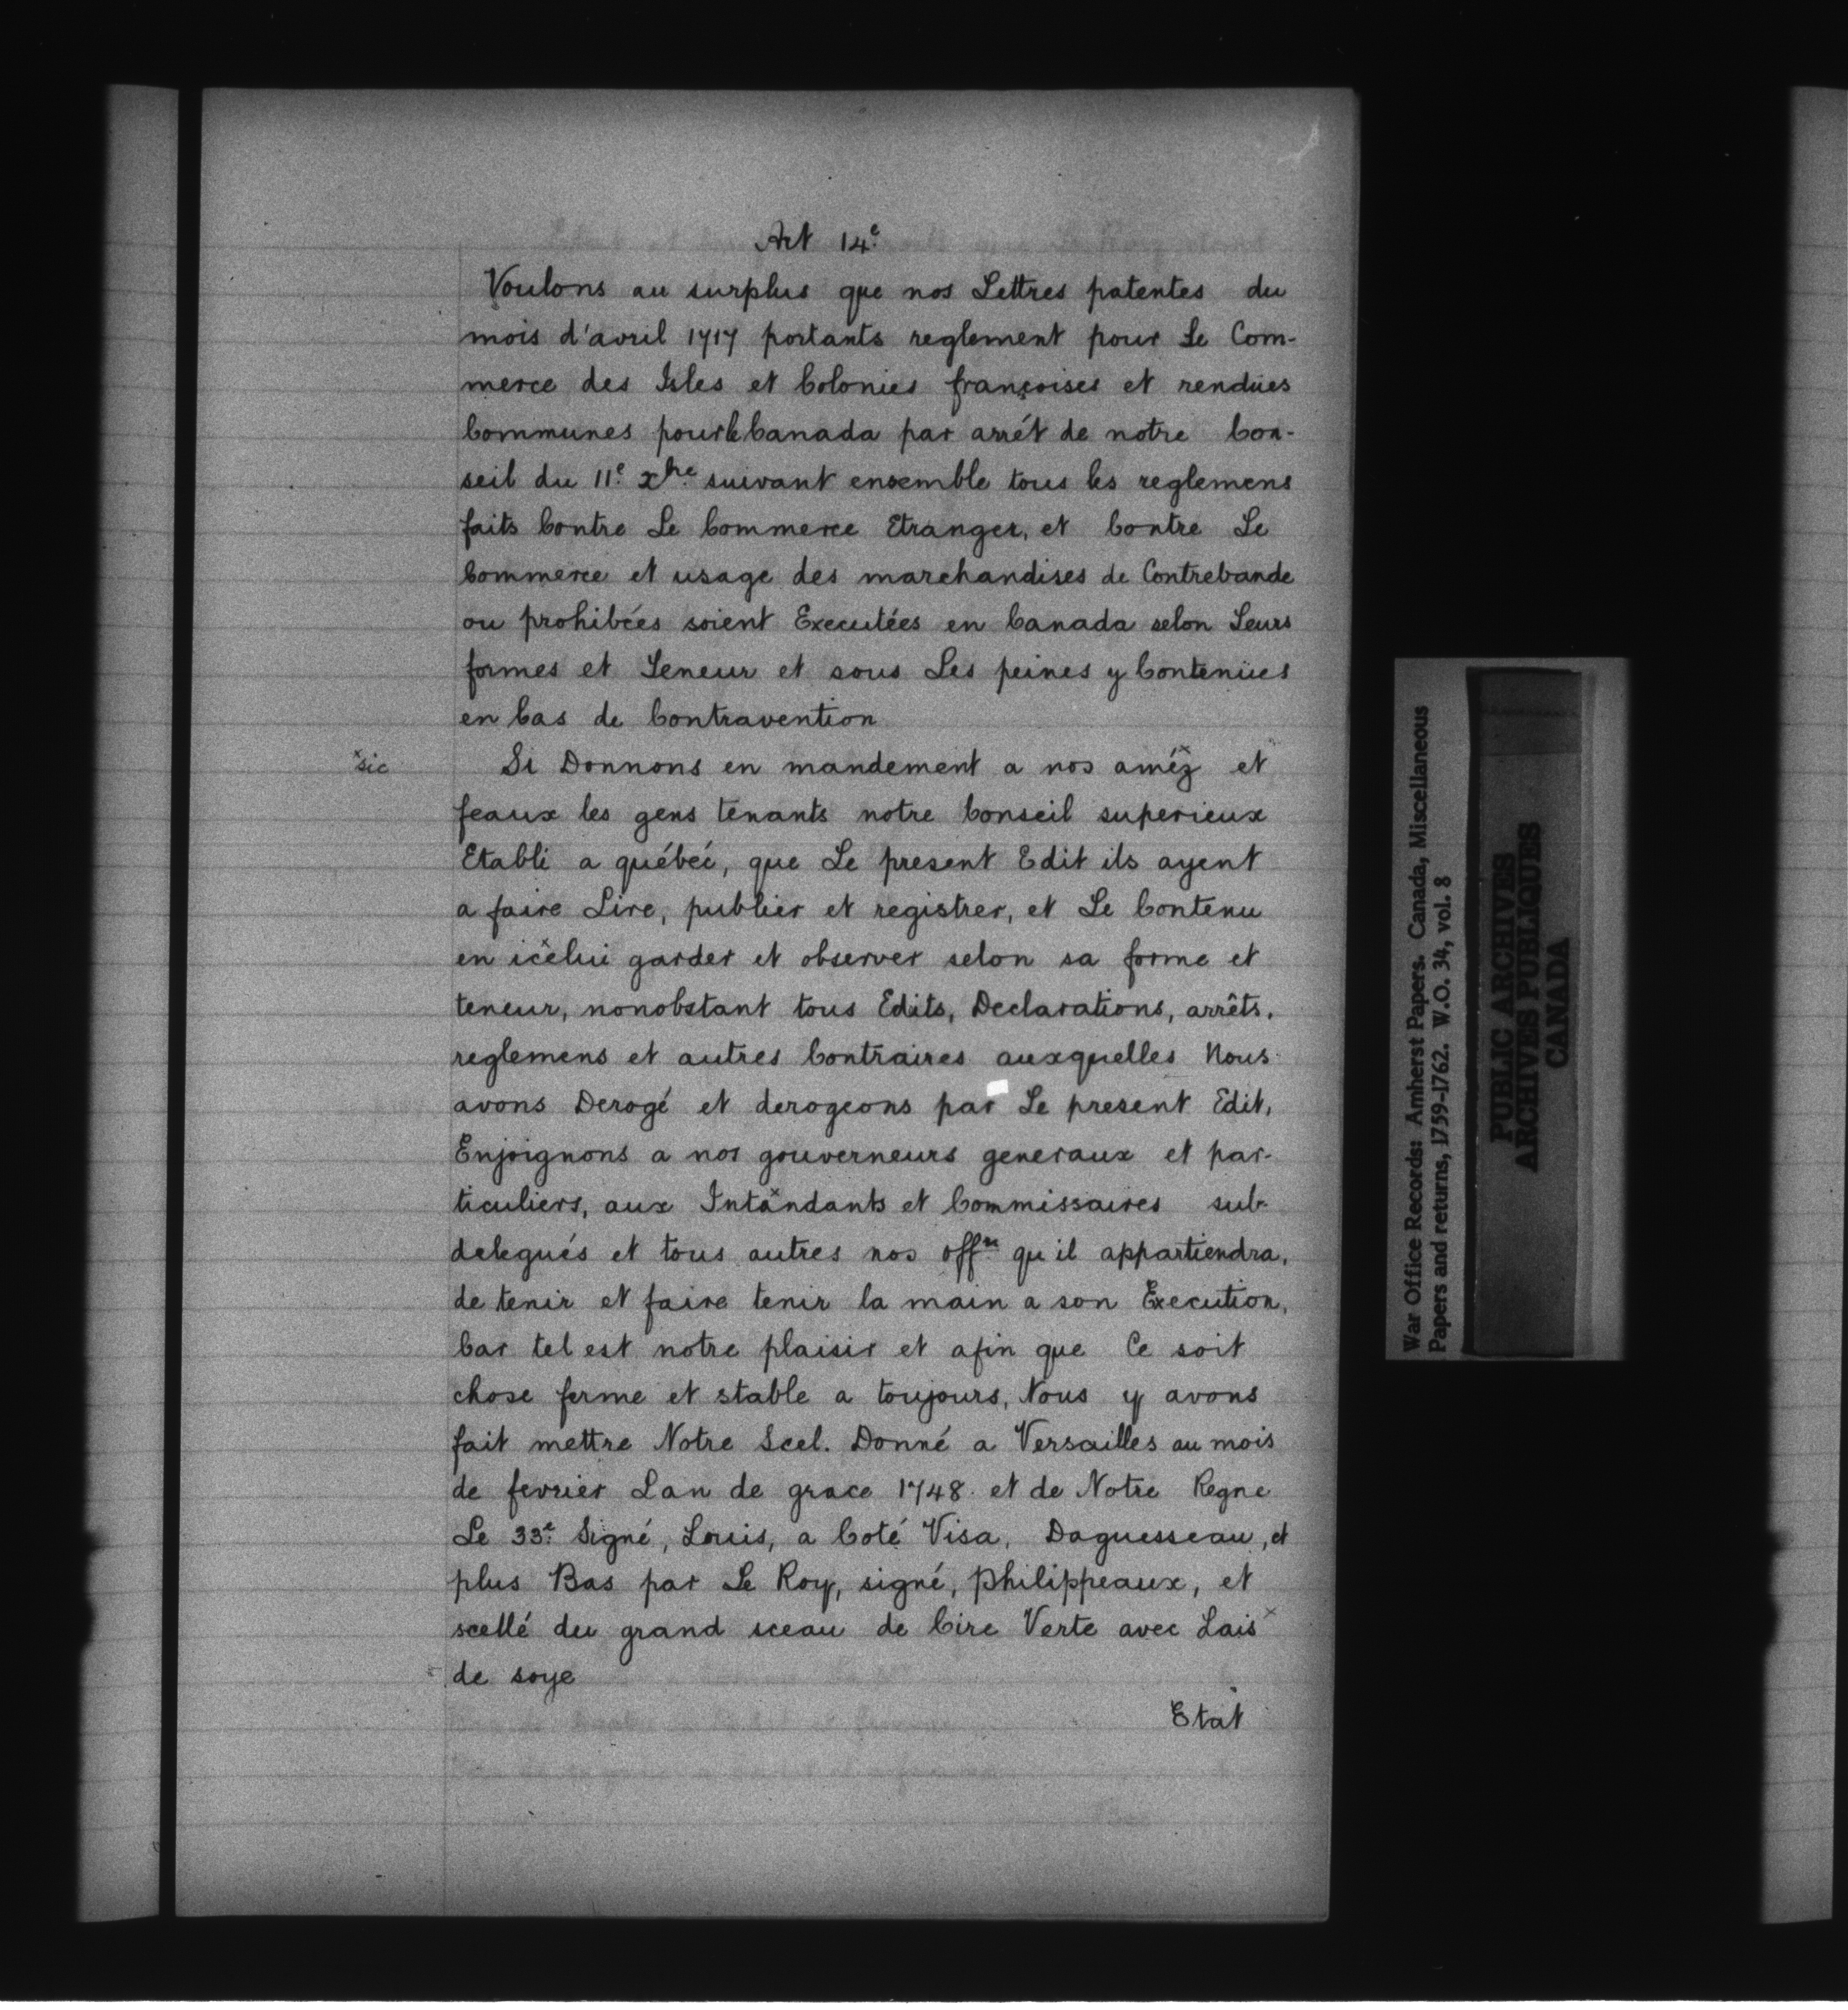 Art 14e.
Voulons au surplus que nos Lettres patentes du
mois d'avril 1717 portants reglement pour Le Com-
merce des Isles et Colonies françoises et rendües
Communes pour le Canada par arrét de notre Con-
seil du 11e. xbre. suivant ensemble tous les reglemens
faits Contre Le Commerce Etranger, et Contre Le
Commerce et usage des marchandises de Contrebande
ou prohibées soient Executées en Canada selon Leurs
formes et Teneur et sous Les peines y Contenües
en Cas de Contravention
xsic Si Donnons en mandement a nos améz x et
feaux les gens tenants notre Conseil superieux
Etabli a québéc, que Le present Edit ils ayent
a faire Lire, publier et registrer, et Le Contenu
en icelui x garder et observer selon sa forme et
teneur, nonobstant tous Edits, Declarations, arrêts,
reglemens et autres Contraires auxquelles Nous
avons Derogé et derogeons par Le present Edit,
Enjoignons a nos gouverneurs generaux et par-
ticuliers, aux Intandants x et Commissaires sub-
delegués et tous autres nos offrs. qu il appartiendra,
de tenir et faire tenir la main a son Execution,
Car tel est notre plaisir et afin que Ce soit
chose ferme et stable a toujours, Nous y avons
fait mettre Notre Scel. Donné a Versailles au mois
de fevrier Lan de grace 1748. et de Notre Regne
Le 33e. Signé, Louis, a Coté Visa, Daguesseau, et
plus Bas par Le Roy, signé, philippeaux, et
scellé du grand sceau de Cire Verte avec Lais x
de soye
Etat
War Office Records: Amherst Papers. Canada, Miscellaneous
Papers and returns, 1759-1762. W.O. 34, vol. 8
PUBLIC ARCHIVES
ARCHIVES PUBLIQUES
CANADA